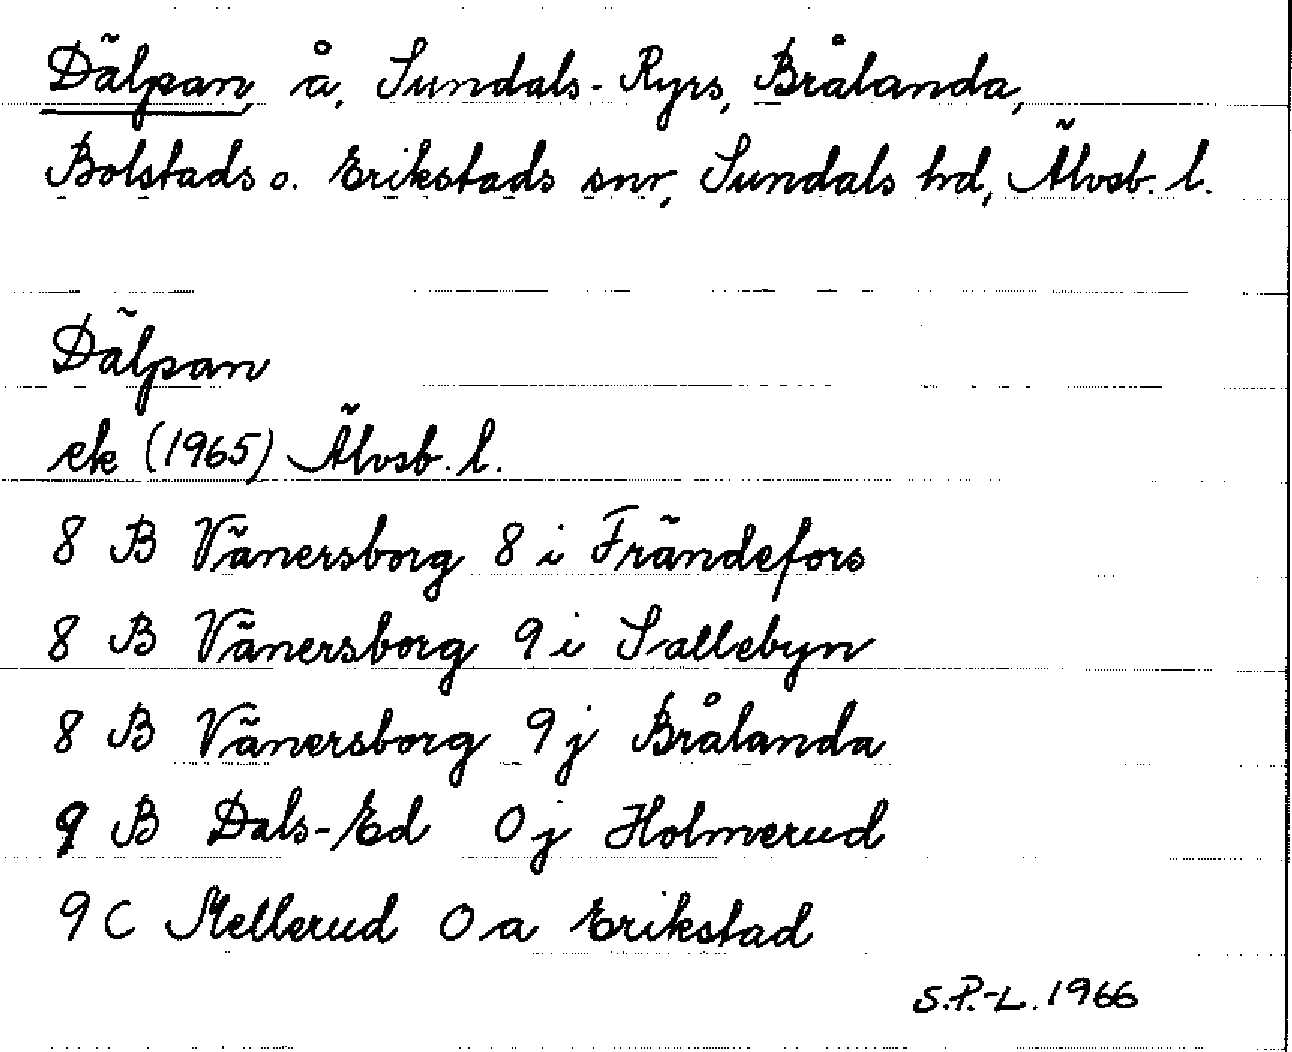 Dälpan, å, Sundals-Ryrs, Brålanda,
Bolstads o. Erikstads snr, Sundals hd, Älvsb. l.
Dälpan
ek (1965) Älvsb. l.
8 B Vänersborg 8 i Frändefors
8 B Vänersborg 9 i Sallebyn
8 B Vänersborg 9 j Brålanda
9 B Dals-Ed 0 j Holmerud
9 C Mellerud 0 a Erikstad
S.P.-L. 1966